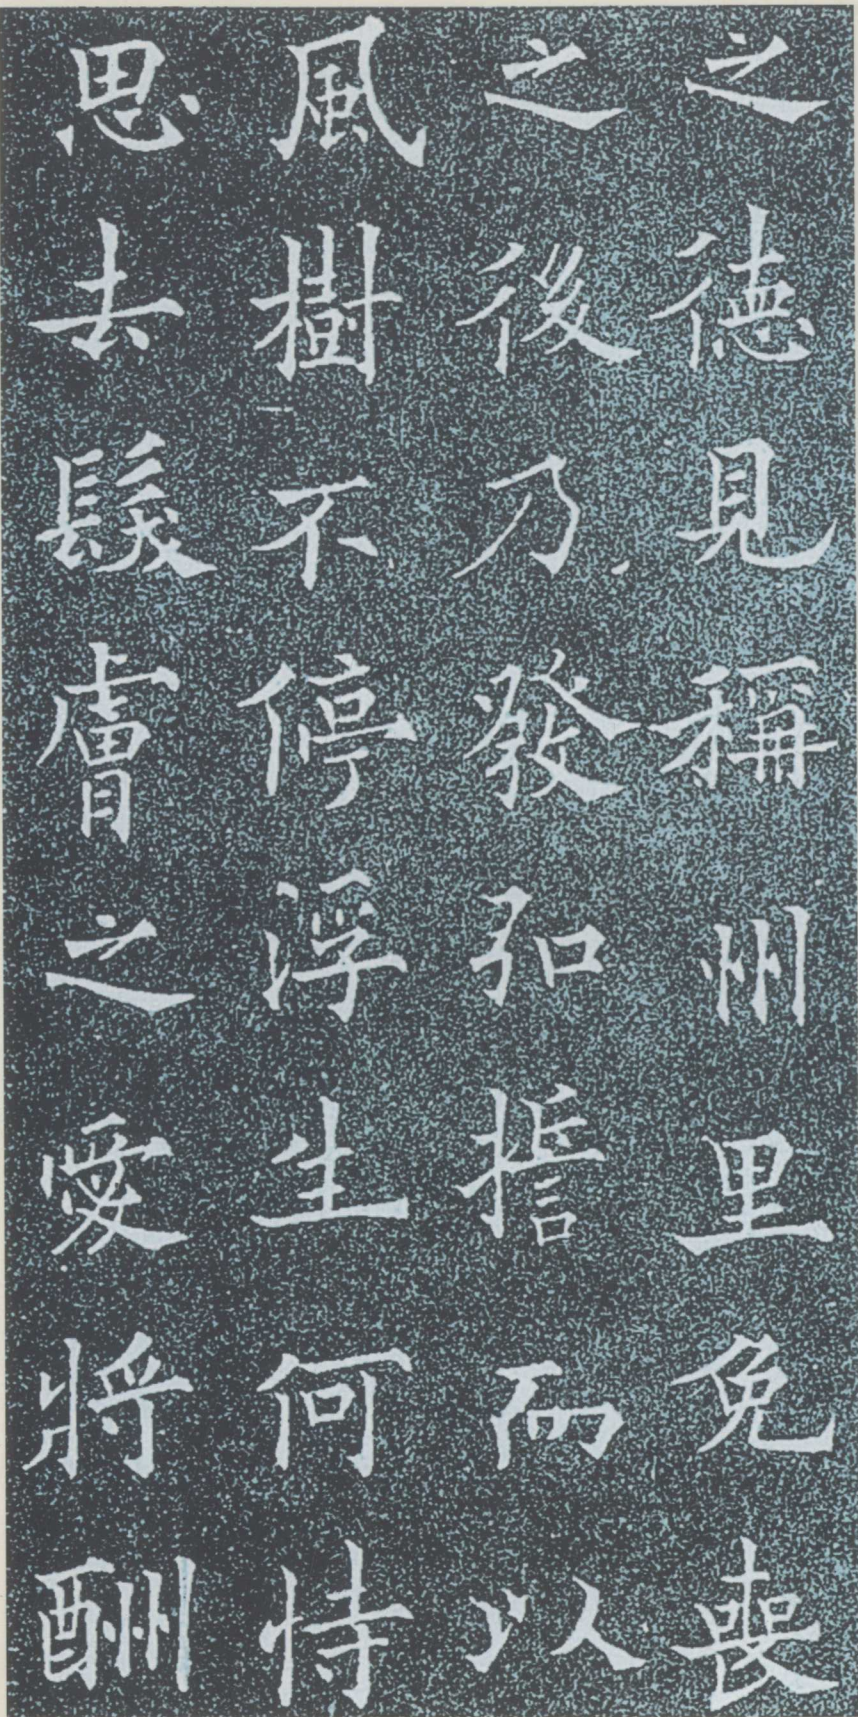 之徳見稱州里免喪
之後乃發弘誓而以
風樹不停浮生何恃
思去髮膚之愛將酬